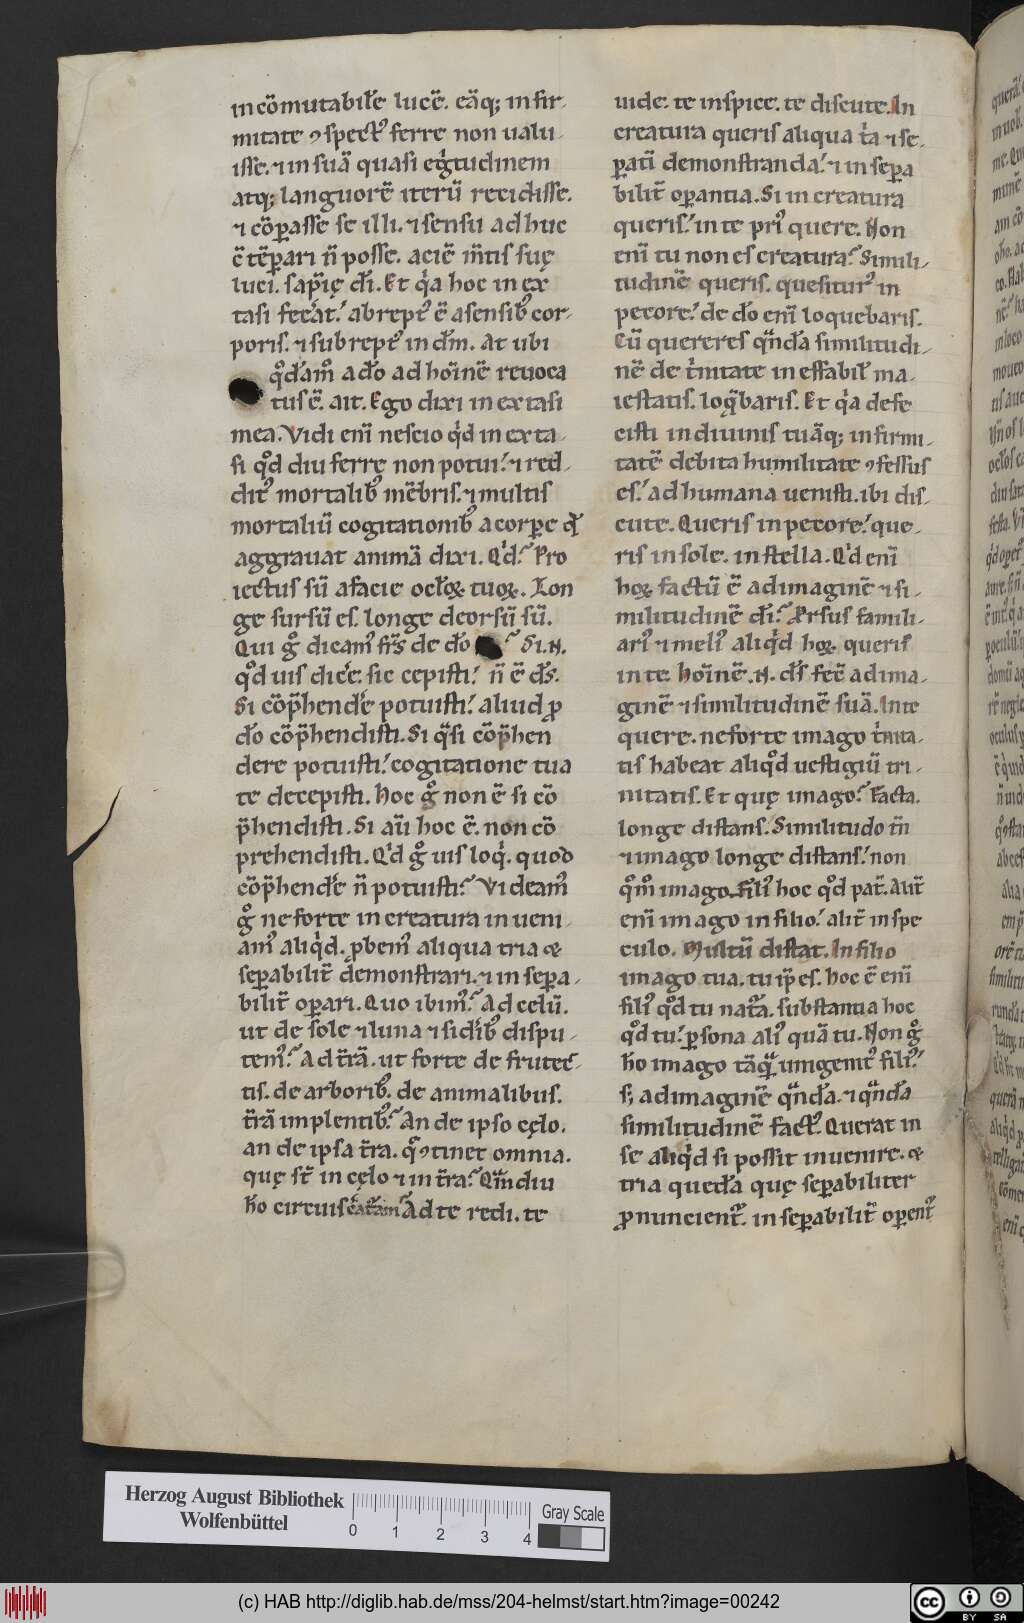 incōmutabilē lucē. eāq; infir-
mitate ꝯspectꝰ ferre non ualu-
isse. ⁊ in suā quasi eg̍tudinem
atq; languorē iterū recidisse.
⁊ cōꝑasse se illi. ⁊ sensu ad huc
ē tēꝑari n̄ posse. aciē m̄tis suę
luci. sap̄ię dī. Et q̍a hoc in ex
tasi fec̍at. abreptꝰ ē a sensibꝰ cor-
poris. ⁊ subreptꝰ in dm̄. At ubi
qͦdāmͦ a dō ad hoīnē reuoca
tus ē. ait. Ego dixi in extasi
mea. Vidi enī nescio q̍d in exta-
si qͦd diu ferre non potui. ⁊ red-
ditꝰ mortalibꝰ mēbris. ⁊ multis
mortaliū cogitationibꝰ a corꝑe q̄
aggrauat animā dixi. Q̍d? Pro
iectus sū a facie oclōꝝ tuoꝝ. Lon
ge sursū es. longe deorsū sū.
Qui gͦ dicamꝰ fr̄s de dō? Si .N.
qͦd uis dic̄e. sic cepisti. n̄ ē ds̄.
Si cōp̄hendēe potuisti. aliud ꝓ
dō cōp̄hendisti. Si q̄si cōp̄hen
dere potuisti. cogitatione tua
te decepisti. Hoc gͦ non ē si cō
p̄hendisti. Si aūi hoc ē. non cō
prehendisti. Q̍d gͦ uis loq̍. quod
cōp̄hendēe n̄ potuisti? Videamꝰ
gͦ ne forte in creatura inueni
amꝰ aliq̍d. ꝓbemꝰ aliqua tria &
seꝑabilit̄ demonstrari. ⁊ inseꝑa-
bilit̄ oꝑari. Quo ibimꝰ? Ad celū.
ut de sole ⁊ luna ⁊ sid̍ibꝰ dispu-
temꝰ? Ad t̄rā. ut forte de frutec̄-
tis. de arboribꝰ. de animalibus.
t̄rā implentibꝰ? An de ipso cęlo.
an de ipsa t̄ra. q̄ ꝯtinet omnia.
quę st̄ in cęlo ⁊ in t̄ra? Qm̄diu
hō circuis c̍eat̄am? Ad te redi. te
uide. te inspice. te discute. In
creatura queris aliqua t̍a ⁊ se-
ꝑatī demonstranda. ⁊ inseꝑa
bilit̄ oꝑantia. Si in creatura
queris. in te priꝰ quere. Non
enī tu non es creatura? Simili-
tudinē queris. quesiturꝰ in
pecore. de dō enī loquebaris.
Cū quereres qn̄dā similitudi-
nē de t̍nitate ineffabil̄ ma-
iestatis. loq̄baris. Et q̍a defe
cisti in diuinis tuāq; infirmi-
tatē debita humilitate ꝯfessus
es. ad humana uenisti. ibi dis-
cute. Queris in pecore. que-
ris in sole. in stella. Q̍d enī
hoꝝ factū ē ad imaginē ⁊ si-
militudinē dī? Prsus famili-
ariꝰ ⁊ meliꝰ aliq̍d hoꝝ queris
in te. hoīnē .N. ds̄ fec̄ ad ima-
ginē ⁊ similitudinē suā. In te
quere. ne forte imago t̍nita-
tis habeat aliqͦd uestigiū tri-
nitatis. Et quę imago? Facta.
longe distans. Similitudo tn̄
⁊ imago longe distans. non
qͦmͦ imago. Filiꝰ hoc qͦd pat̄. Alit̄
enī imago in filio. alit̄ in spe
culo. Multū distat. In filio
imago tua. tu ip̄ es. hoc ē enī
filiꝰ qͦd tu natᷓa. substantia hoc
qͦd tu. ꝑsona aliꝰ quā tu. Non gͦ
hō imago tāqᷓ unigenitꝰ filiꝰ.
s; ad imaginē qn̄dā. ⁊ qn̄dā
similitudinē factꝰ. Querat in
se aliq̍d si possit inuenire. &
tria quedā quę seꝑabiliter
ꝓnuncientᷣ. inseꝑabilit̄ oꝑentᷣ
Herzog August Bibliothek
Wolfenbüttel
0 1 2 3 4
Gray Scale
(c) HAB http://diglib.hab.de/mss/204-helmst/start.htm?image=00242
cc BY SA